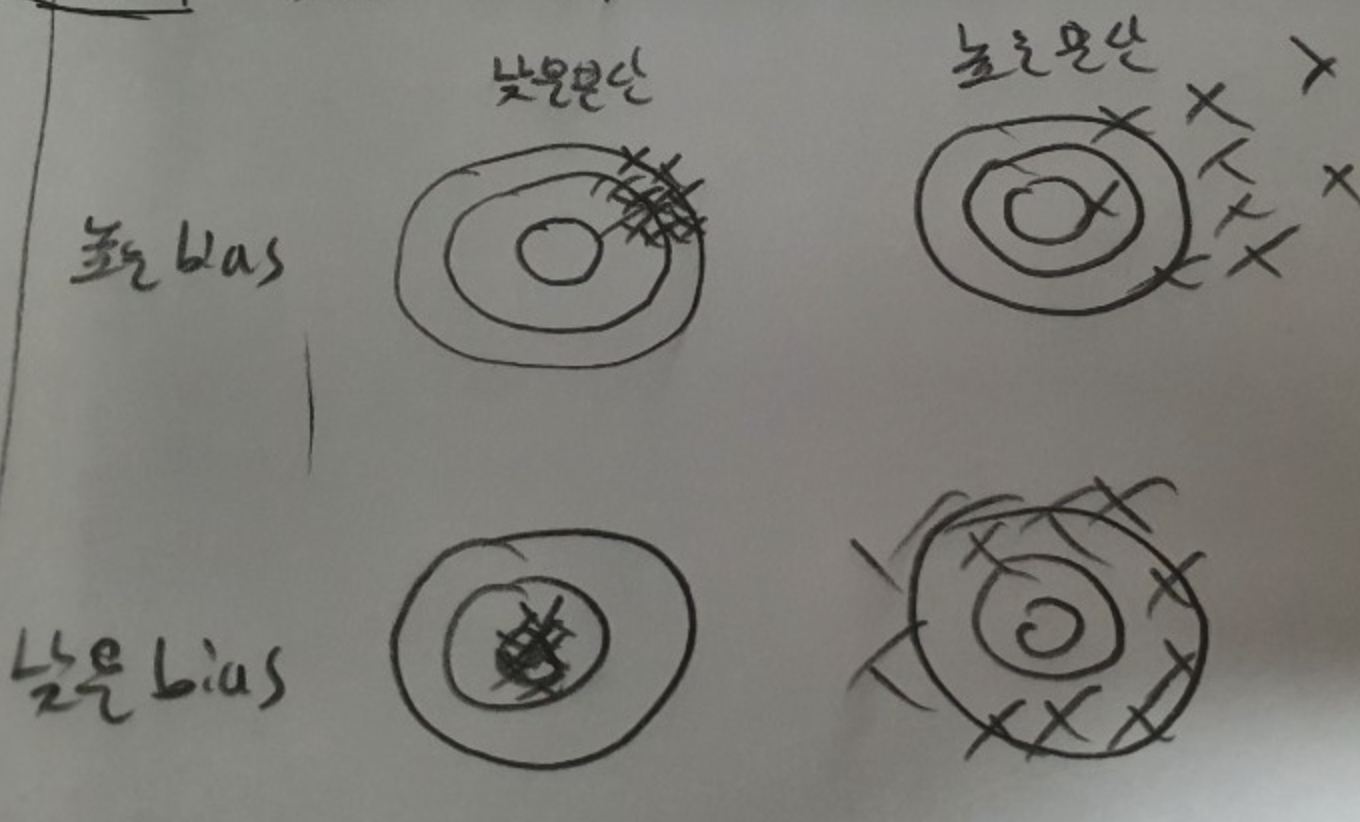 낮은분산
높은분산
높은 bias
낮은 bias